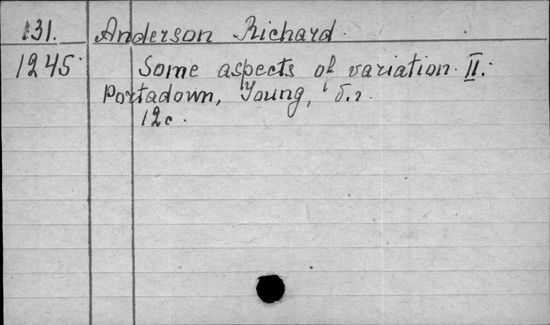 131. Anderson Richard.
1245 Some aspects of variation. II.
Portadown, Young, б.г.
12с.